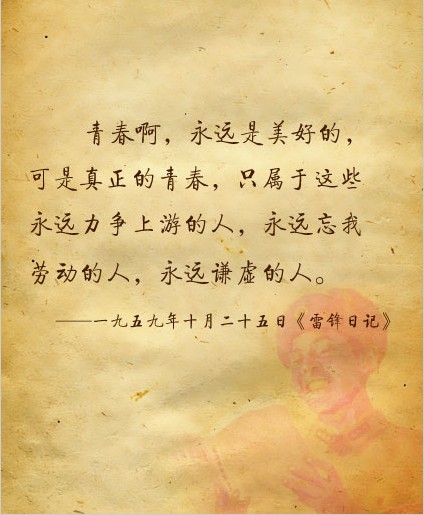 青春啊，永远是美好的，
可是真正的青春，只属于这些
永远力争上游的人，永远忘我
劳动的人，永远谦虚的人。
——一九五九年十月二十五日《雷锋日记》